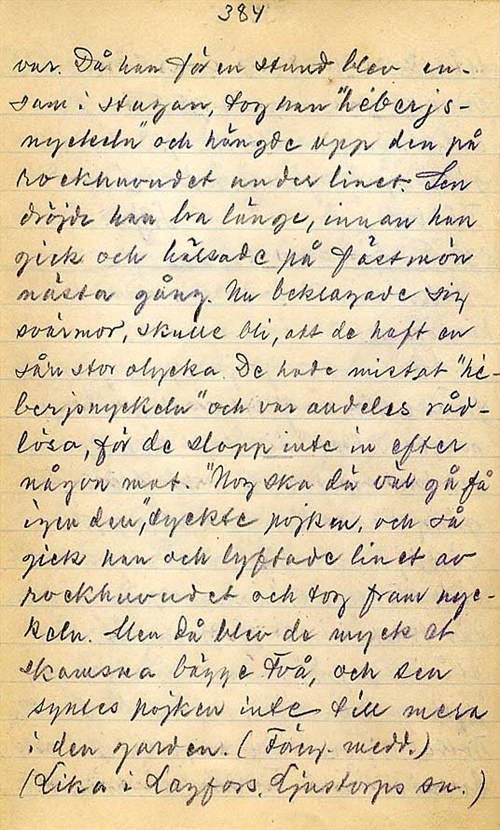 384
var. Då han för en stund blev en-
sam i stugan, tog han "hèberjs-
nyckeln" och hängde upp den på
rockhuvudet under linet. Sen
dröjde han bra länge, innan han
gick och hälsade på fästmön
nästa gång. Nu beklagade sig
svärmor, skulle bli, att de haft en
sån stor olycka. De hade mistat "hè-
berjsnyckeln" och var andeles råd-
lösa, för de slapp inte in efter
någon mat. "Nog ska då väl gå få
igen den", tyckte pojken, och så
gick han och lyftade linet av
rockhuvudet och tog fram nyc-
keln. Men då blev de mycket
skamsna bägge två, och sen
syntes pojken inte till mera
i den garden. (Föreg. medd.)
(Lika i Lagfors, Ljustorps sn.)